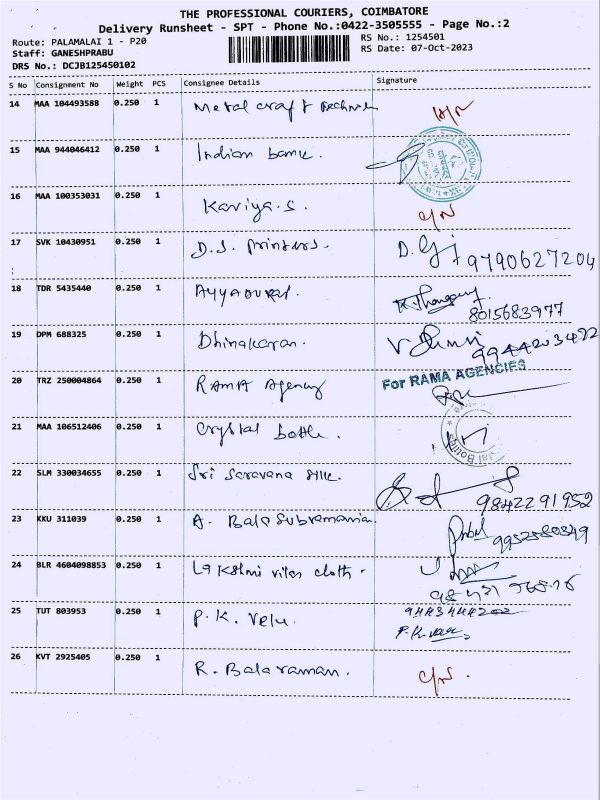 THE PROFESSIONAL COURIERS, COIMBATORE
Delivery Runsheet - SPT - Phone No.:0422-3505555 - Page No.:2
Route: PALAMALAI 1 - P20
RS No.: 1254501
Staff: GANESHPRABU
RS Date: 07-Oct-2023
DRS No.: DCJB125450102
S No Consignment No Weight PCS Consignee Details Signature
14 MAA 104493588 0.250 1 Metal craft
15 MAA 944046412 0.250 1 Indian bank.
16 MAA 100353031 0.250 1 Kaviya.S. C/N
17 SVK 10430951 0.250 1 D.S. Printers.
9790627204
18 TDR 5435440 0.250 1 AYYADURAI
8015683977
19 DPM 688325 0.250 1 Dhinakaran.
9944203422
20 TRZ 250004864 0.250 1 RAMA Agency
For RAMA AGENCIES
21 MAA 106512406 0.250 1 Crystal bottle.
22 SLM 330034655 0.250 1 Sri Saravana silk.
9842291952
23 KKU 311039 0.250 1 A. Balasubramanian
24 BLR 4604098853 0.250 1 Lakshmi vilas cloth-
25 TUT 803953 0.250 1 P.K. Velu.
26 KVT 2925405 0.250 1 R. Balaraman. C/N.